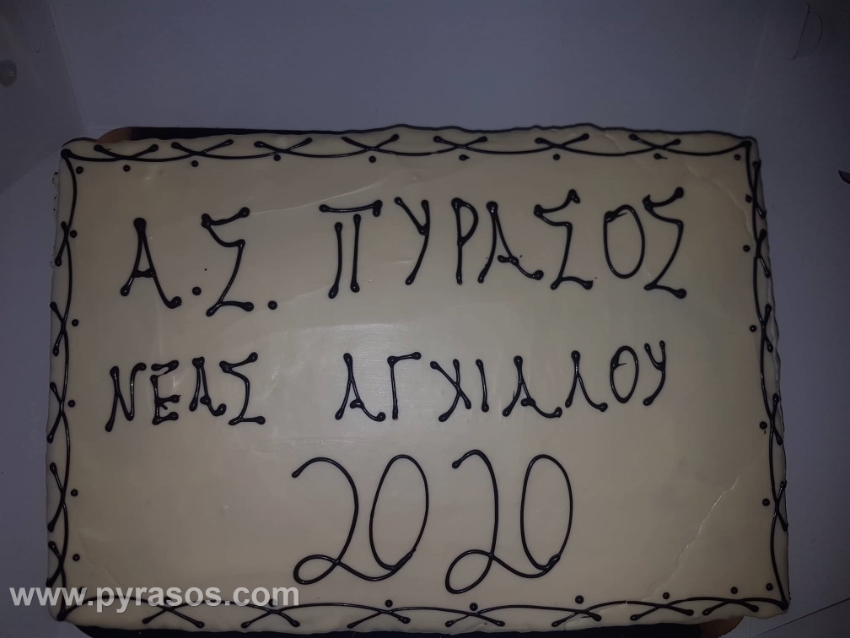 Α.Σ. ΠΥΡΑΣΟΣ
ΝΕΑΣ ΑΓΧΙΑΛΟΥ
2020
www.pyrasos.com